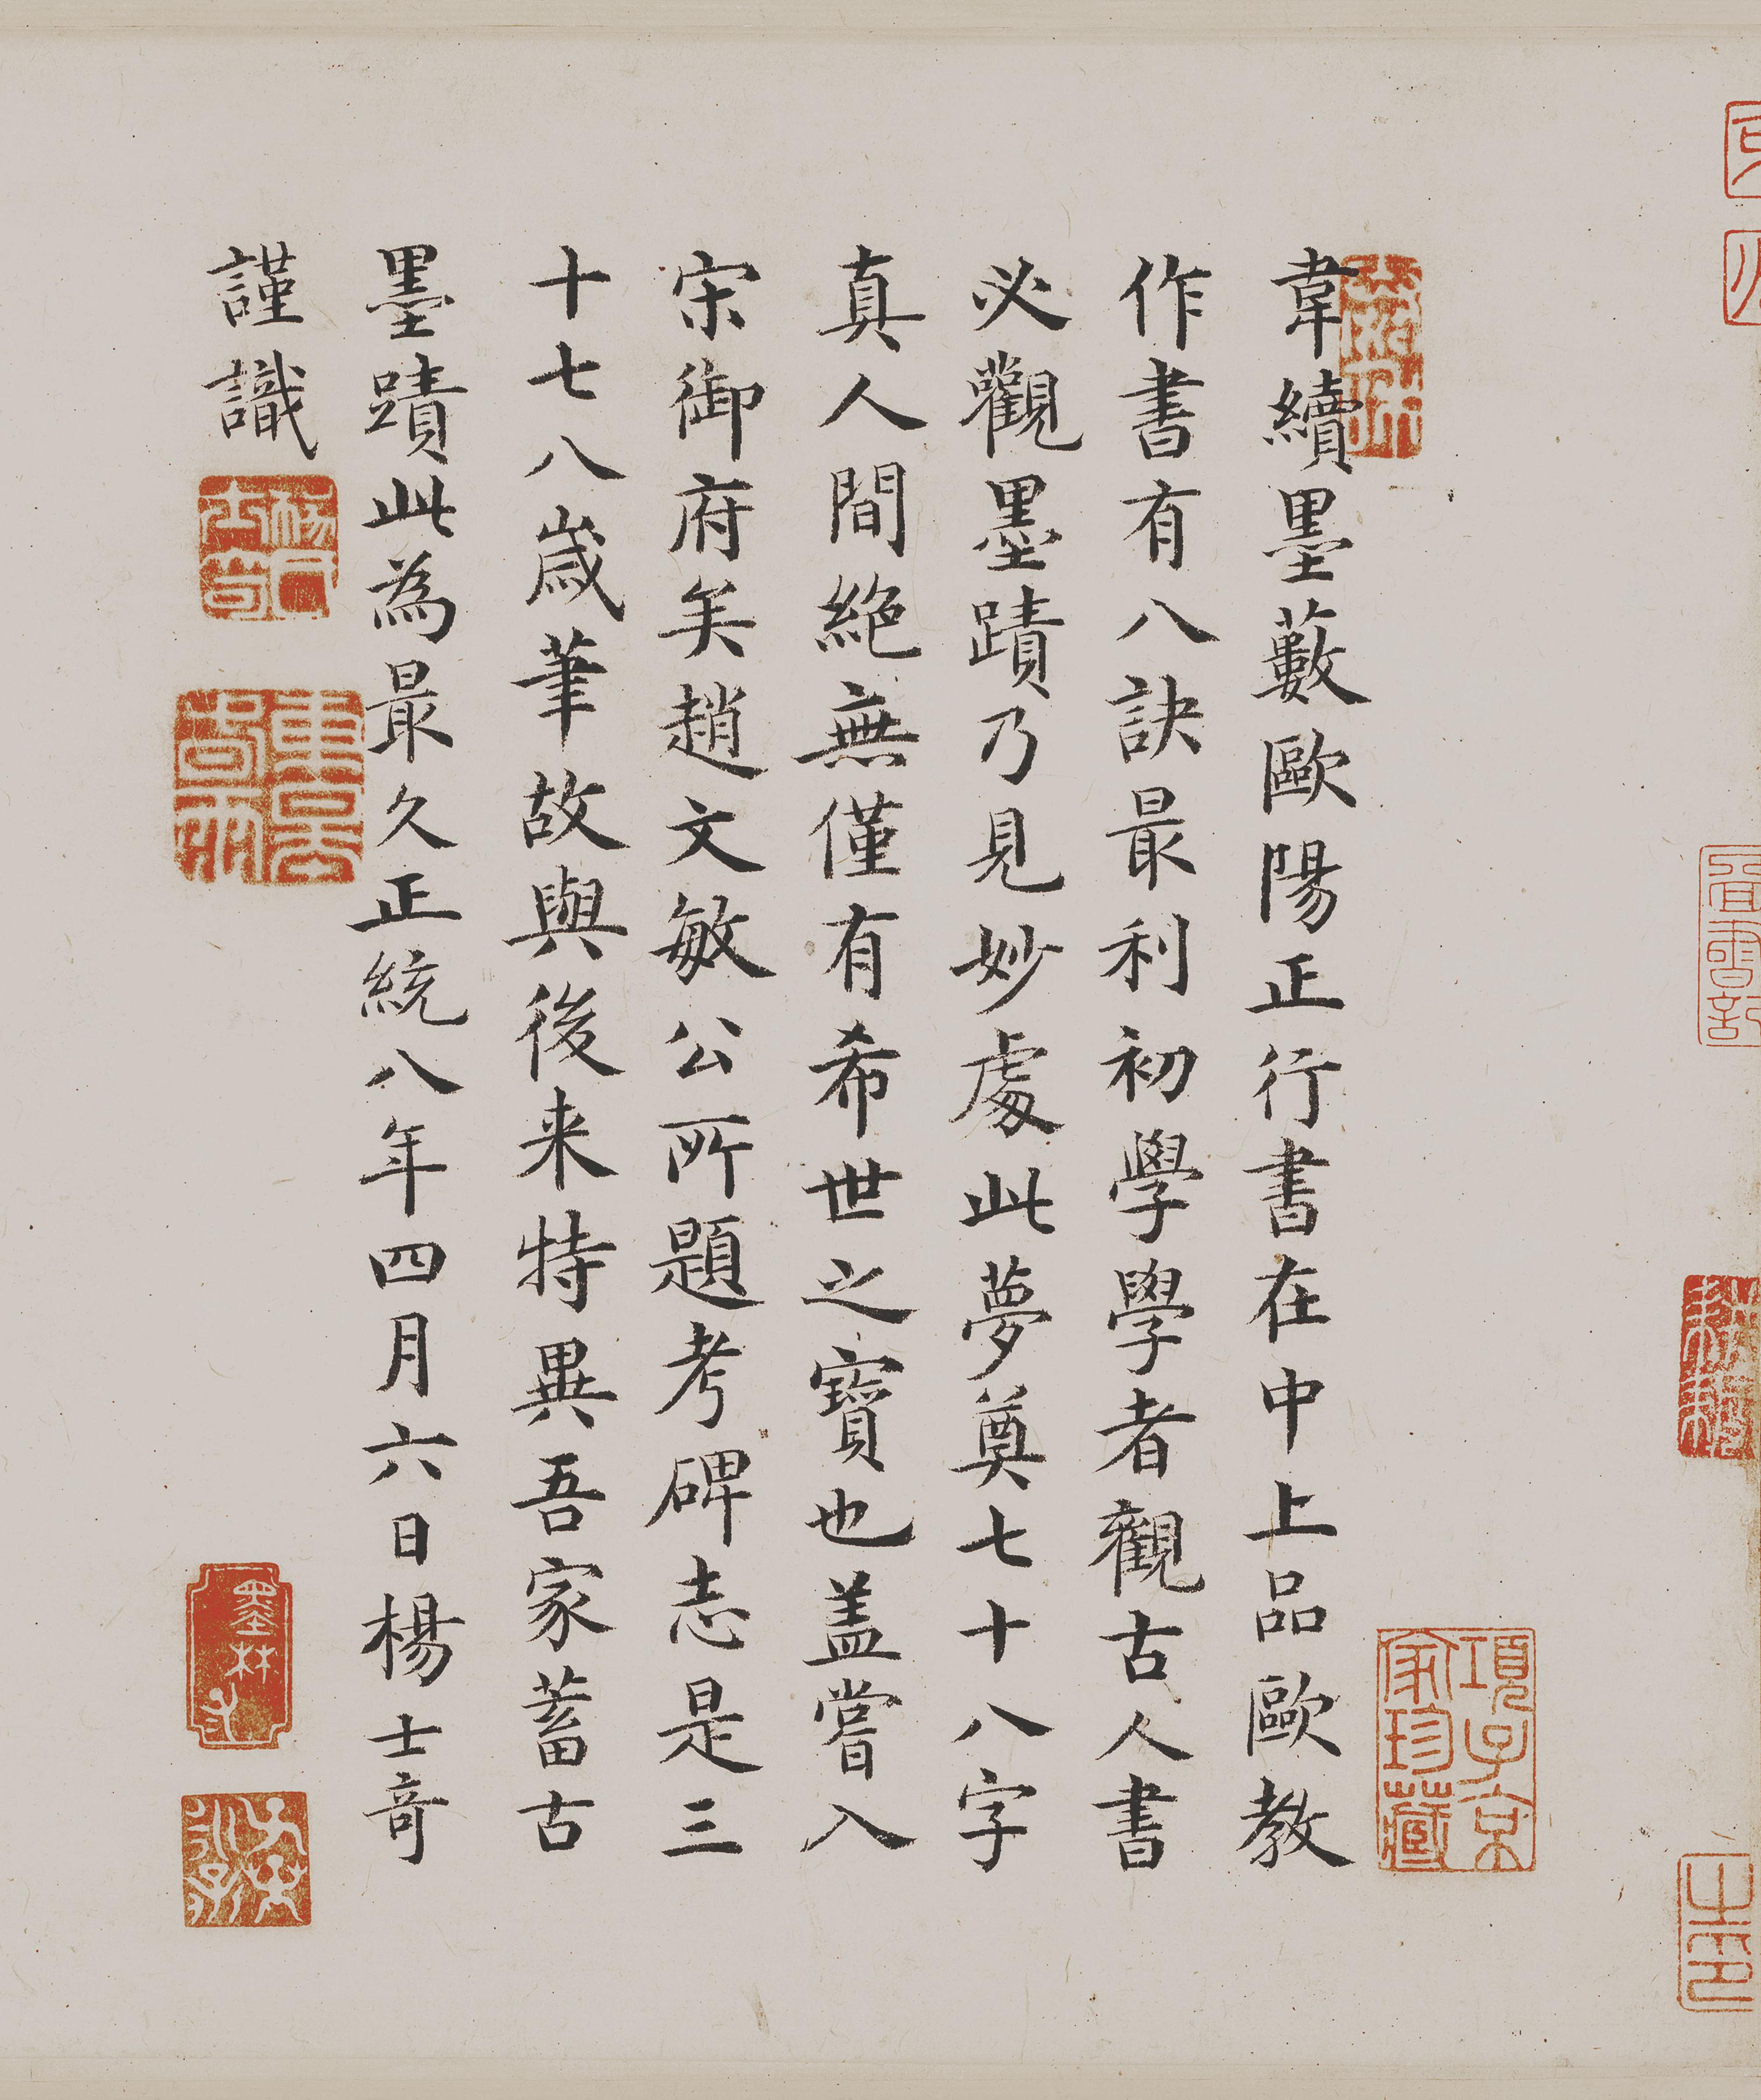 韋續墨藪歐陽正行書在中上品歐教
作書有八訣最利初學學者觀古人書
必觀墨蹟乃見妙處此夢奠七十八字
真人間絕無僅有希世之寶也盖嘗入
宋御府矣趙文敏公所題考碑志是三
十七八歲筆故與後来特異吾家蓄古
墨蹟此為最久正統八年四月六日楊士奇
謹識
項子京家珍藏
楊氏士奇
墨林